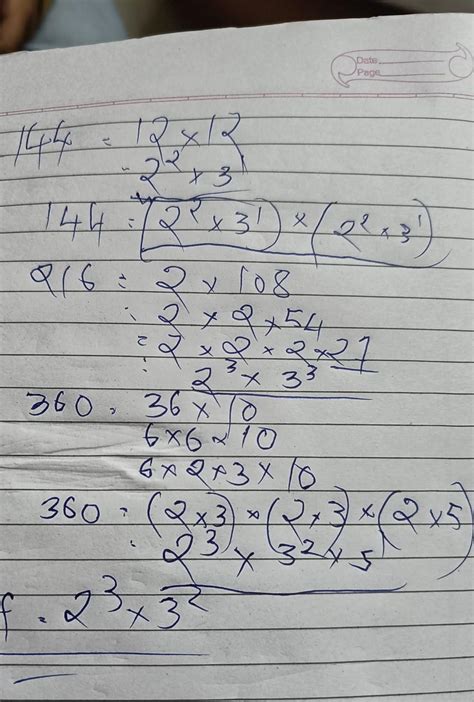 Date
Page
144 = 12 × 12
= 2² × 3¹
144 = (2² × 3¹) × (2² × 3¹)
216 = 2 × 108
= 2 × 2 × 54
= 2 × 2 × 2 × 27
= 2³ × 3³
360 = 36 × 10
6 × 6 × 10
6 × 2 × 3 × 10
360 = (2 × 3) × (2 × 3) × (2 × 5)
= 2³ × 3² × 5
f = 2³ × 3²